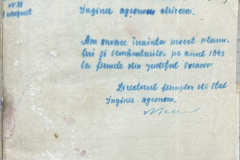 August
Inginer agronom
Am onoare înainta proect planu-
lui și semănăturilor pe anul 1945
la fermele din județul Soroca
Directorul fermelor de Stat
Inginer agronom,